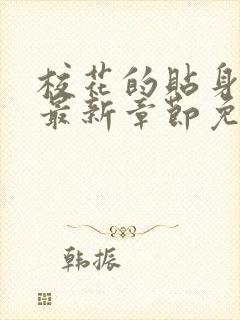 校花的贴身
最新章节免
韩振